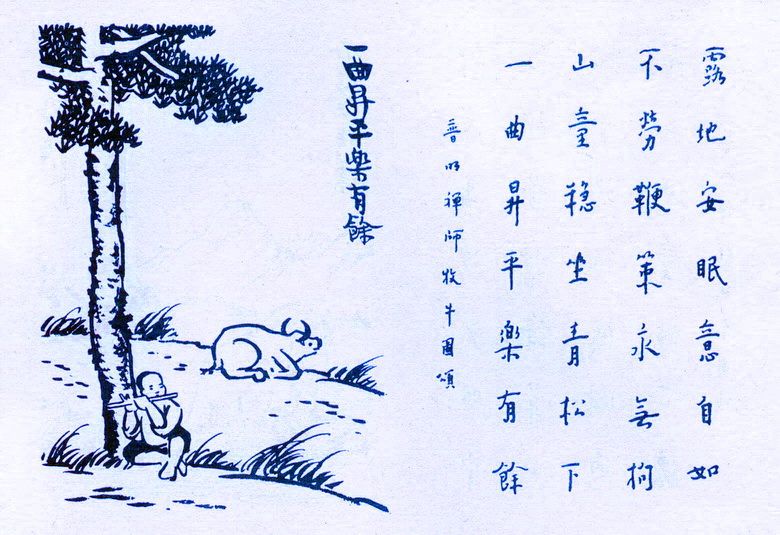 露地安眠意自如
不勞鞭策永無拘
山童穩坐青松下
一曲昇平樂有餘
普明禪師牧牛圖頌
一曲昇平樂有餘